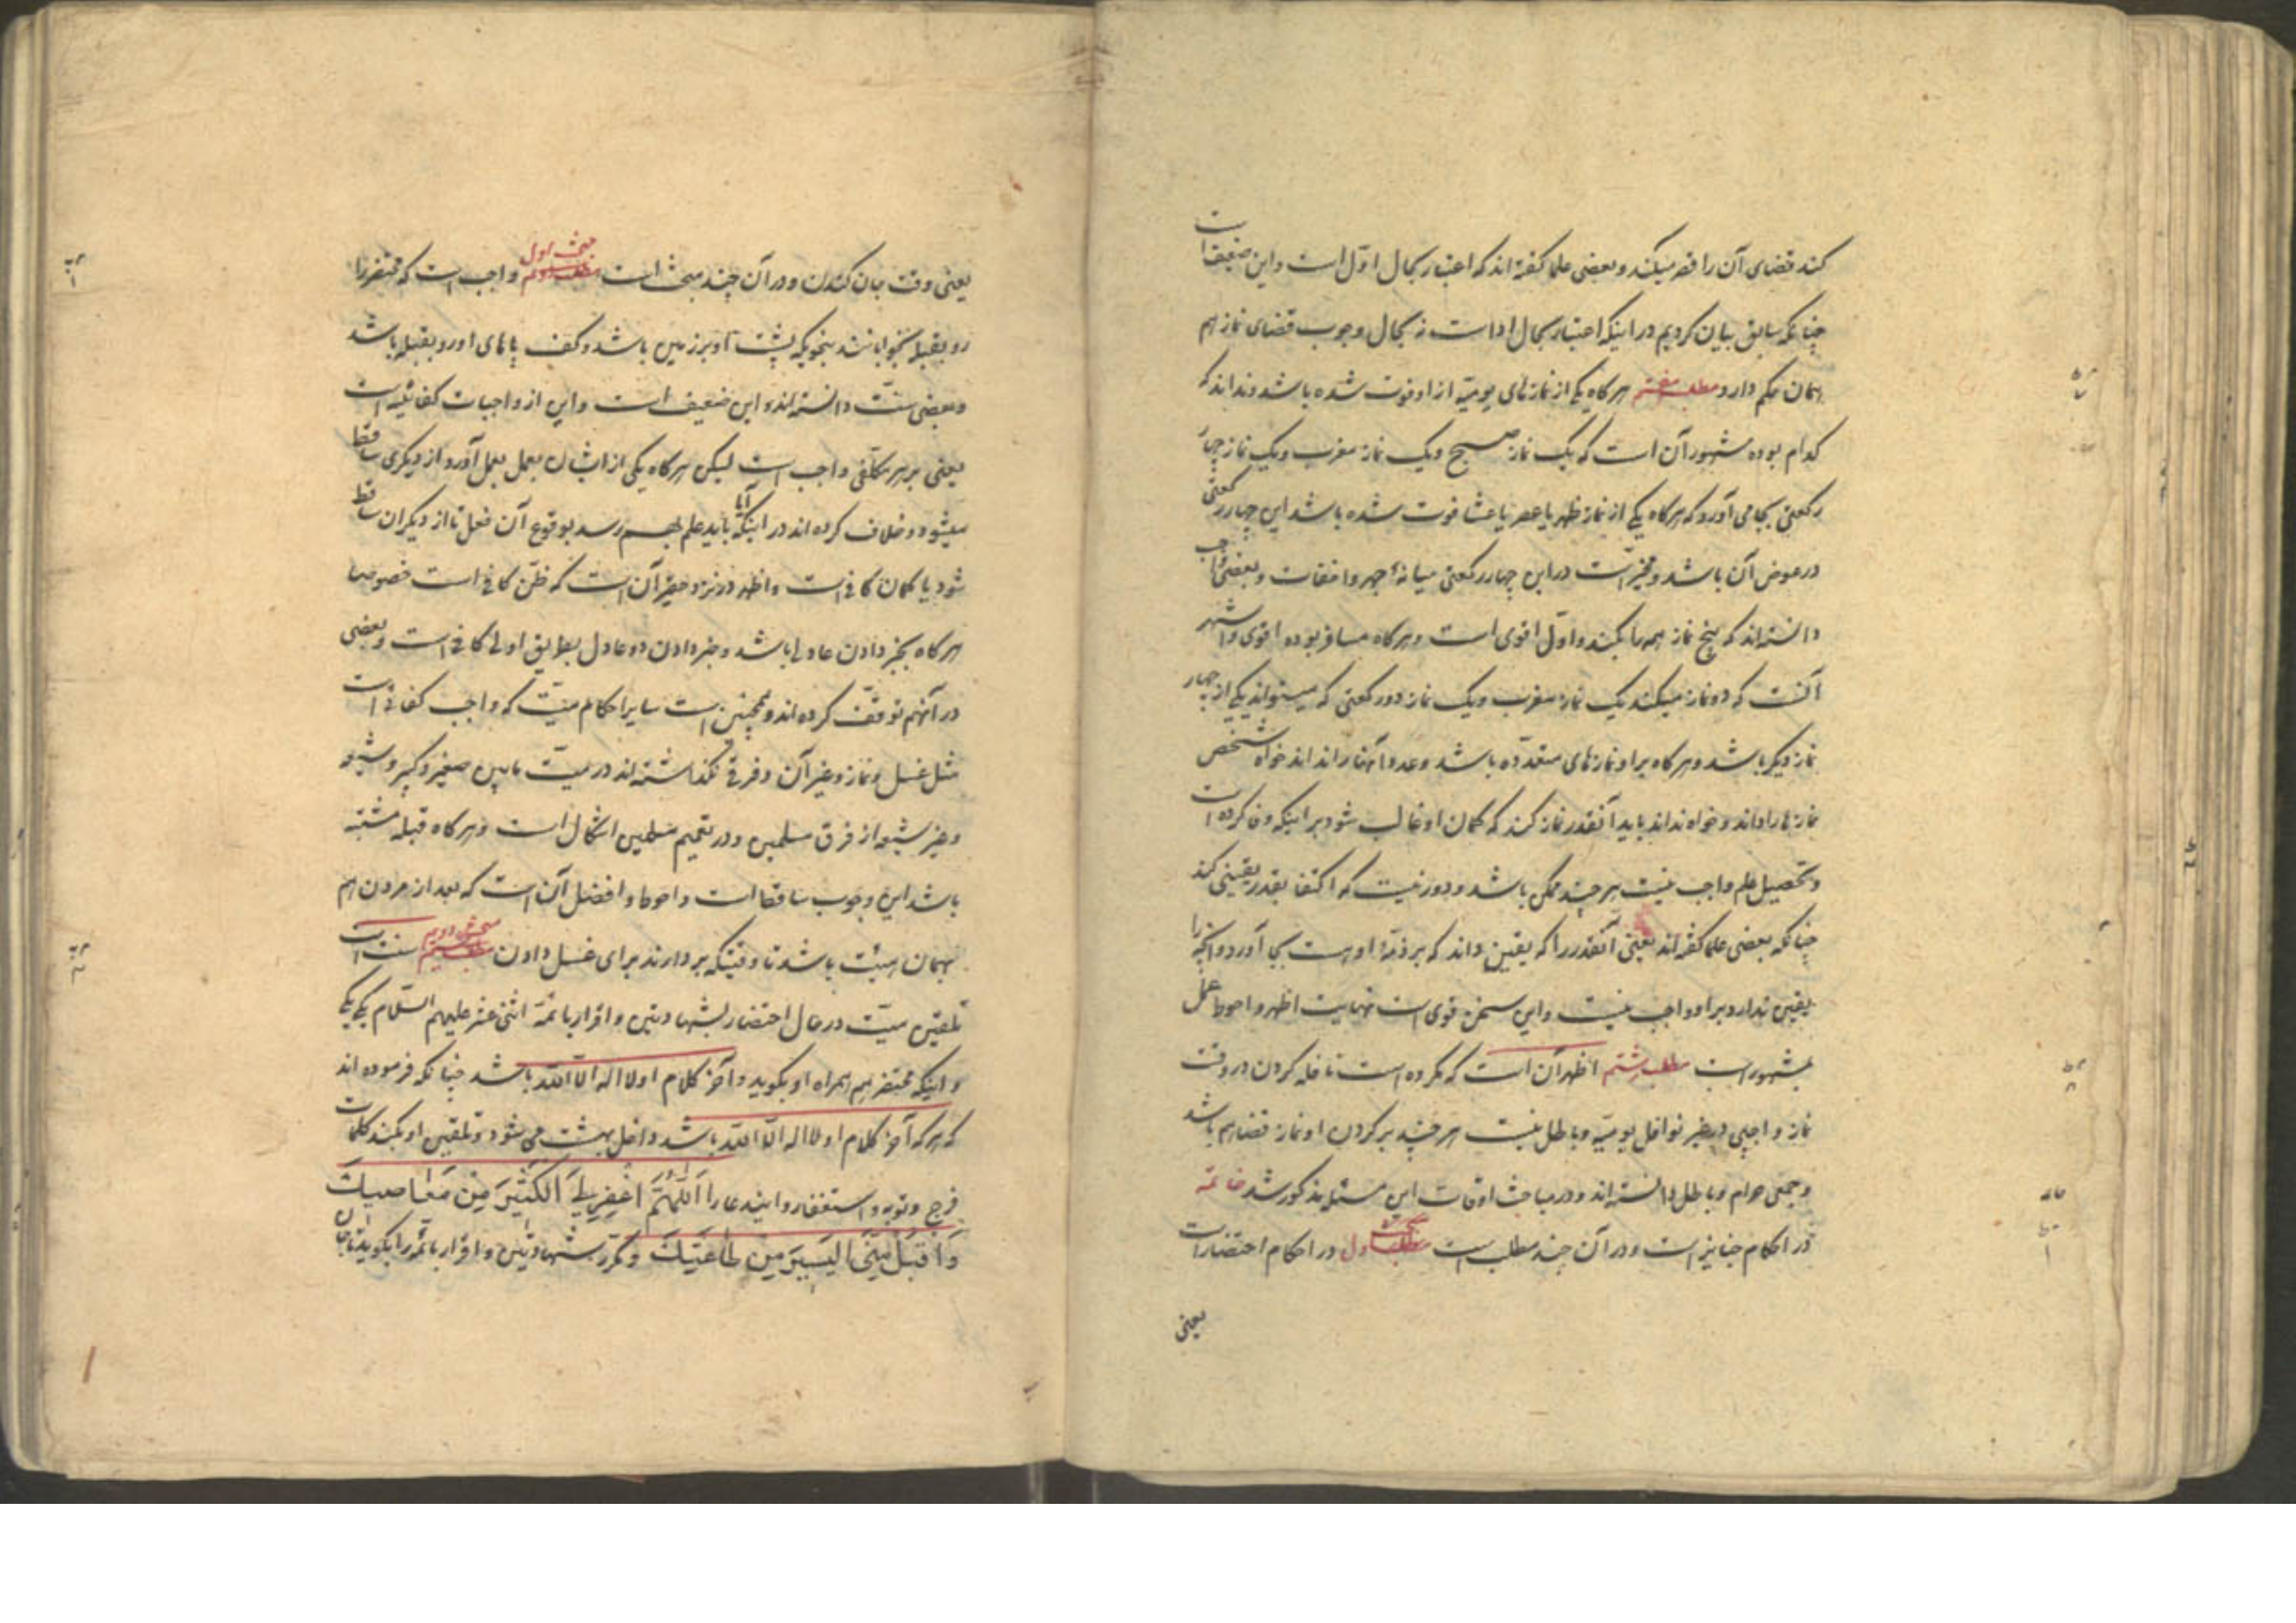 کند قضای آن را قصر میکند و بعضی علما گفته‌اند که اعتبار بحال اول است و این ضعیف است
چنانکه سابق بیان کردیم در اینکه اعتبار بحال ادا است نه بحال وجوب قضای نماز هم
همان حکم دارد مطلب هفتم هرگاه یکی از نمازهای یومیّه از او فوت شده باشد و نداند که
کدام بوده مشهور آن است که یک نماز صبح و یک نماز مغرب و یک نماز چهار
رکعتی بجا می‌آورد که هرگاه یکی از نماز ظهر یا عصر یا عشا فوت شده باشد این چهار رکعتی
در عوض آن باشد و مخیّر است در این چهار رکعتی میانهٔ جهر و اخفات و بعضی واجب
دانسته‌اند که پنج نماز همه را بکند و اوّل اقوی است و هرگاه مسافر بوده اقوی و اشهر
آنست که دو نماز میکند یک نماز مغرب و یک نماز دو رکعتی که میتواند یکی از چهار
نماز دیگر باشد و هرگاه بر او نمازهای متعدّده باشد و عدد آنها را نداند خواه شخص
نمازها را داند و خواه نداند باید آنقدر نماز کند که گمان او غالب شود بر اینکه وفا کرده است
و تحصیل علم واجب نیست هر چند ممکن باشد و دور نیست که اکتفا بقدر یقینی کند
چنانکه بعضی علما گفته‌اند یعنی آنقدر را که یقین داند که بر ذمّهٔ او هست بجا آورد و آنچه را
یقین ندارد بر او واجب نیست و این سخن قوی است نهایت اظهر و احوط عمل
بمشهور است مطلب هشتم اظهر آن است که مکروه است نافله کردن در وقت
نماز واجبی در غیر نوافل یومیّه و باطل نیست هر چند بر گردن او نماز قضا هم باشد
و جمعی حرام و باطل دانسته‌اند و در مباحث اوقات این مسئله مذکور شد خاتمه
در احکام جنایز است و در آن چند مطلب است مطلب اول در احکام احتضار است
یعنی
یعنی وقت جان کندن و در آن چند مبحث است مبحث اول واجب است که محتضر را
رو بقبله بخوابانند بنحویکه پشت او بر زمین باشد و کف پاهای او رو بقبله باشد
و بعضی سنّت دانسته‌اند و این ضعیف است و این از واجبات کفائیّه است
یعنی بر هر مکلّفی واجب است لیکن هرگاه یکی از ایشان بعمل بعمل آورد از دیگری ساقط
میشود و خلاف کرده‌اند در اینکه آیا باید علم بهم رسد بوقوع آن فعل تا از دیگران ساقط
شود یا گمان کافی است و اظهر در نزد حقیر آن است که ظنّ کافی است خصوصا
هرگاه بخبر دادن عادلی باشد و خبر دادن دو عادل بطریق اولی کافی است و بعضی
در آنهم توقّف کرده‌اند و همچنین است سایر احکام میّت که واجب کفائی است
مثل غسل و نماز و غیر آن و فرقی نگذاشته‌اند در میّت مابین صغیر و کبیر و شیعه
و غیر شیعه از فرق مسلمین و در تعمیم مسلمین اشکال است و هرگاه قبله مشتبه
باشد این وجوب ساقط است و احوط و افضل آن است که بعد از مردن هم
بهمان هیئت باشد تا وقتیکه بردارند برای غسل دادن مبحث دویم سنت است
تلقین میّت در حال احتضار بشهادتین و اقرار بائمّهٔ اثنی عشر علیهم السّلام یکی یکی
و اینکه محتضر هم همراه او بگوید و آخر کلام او لا اله الّا اللّه باشد چنانکه فرموده‌اند
که هر که آخر کلام او لا اله الّا اللّه باشد داخل بهشت می‌شود و تلقین او بکند کلمات
فرج و توبه و استغفار و ایندعا را اَللّٰهُمَّ اغْفِرْ لِیَ الْکَثیرَ مِنْ مَعَاصیکَ
وَاقْبَلْ مِنِّی الْیَسیرَ مِنْ طَاعَتِکَ و مکرّر شهادتین و اقرار بائمّه را بگوید تا جان